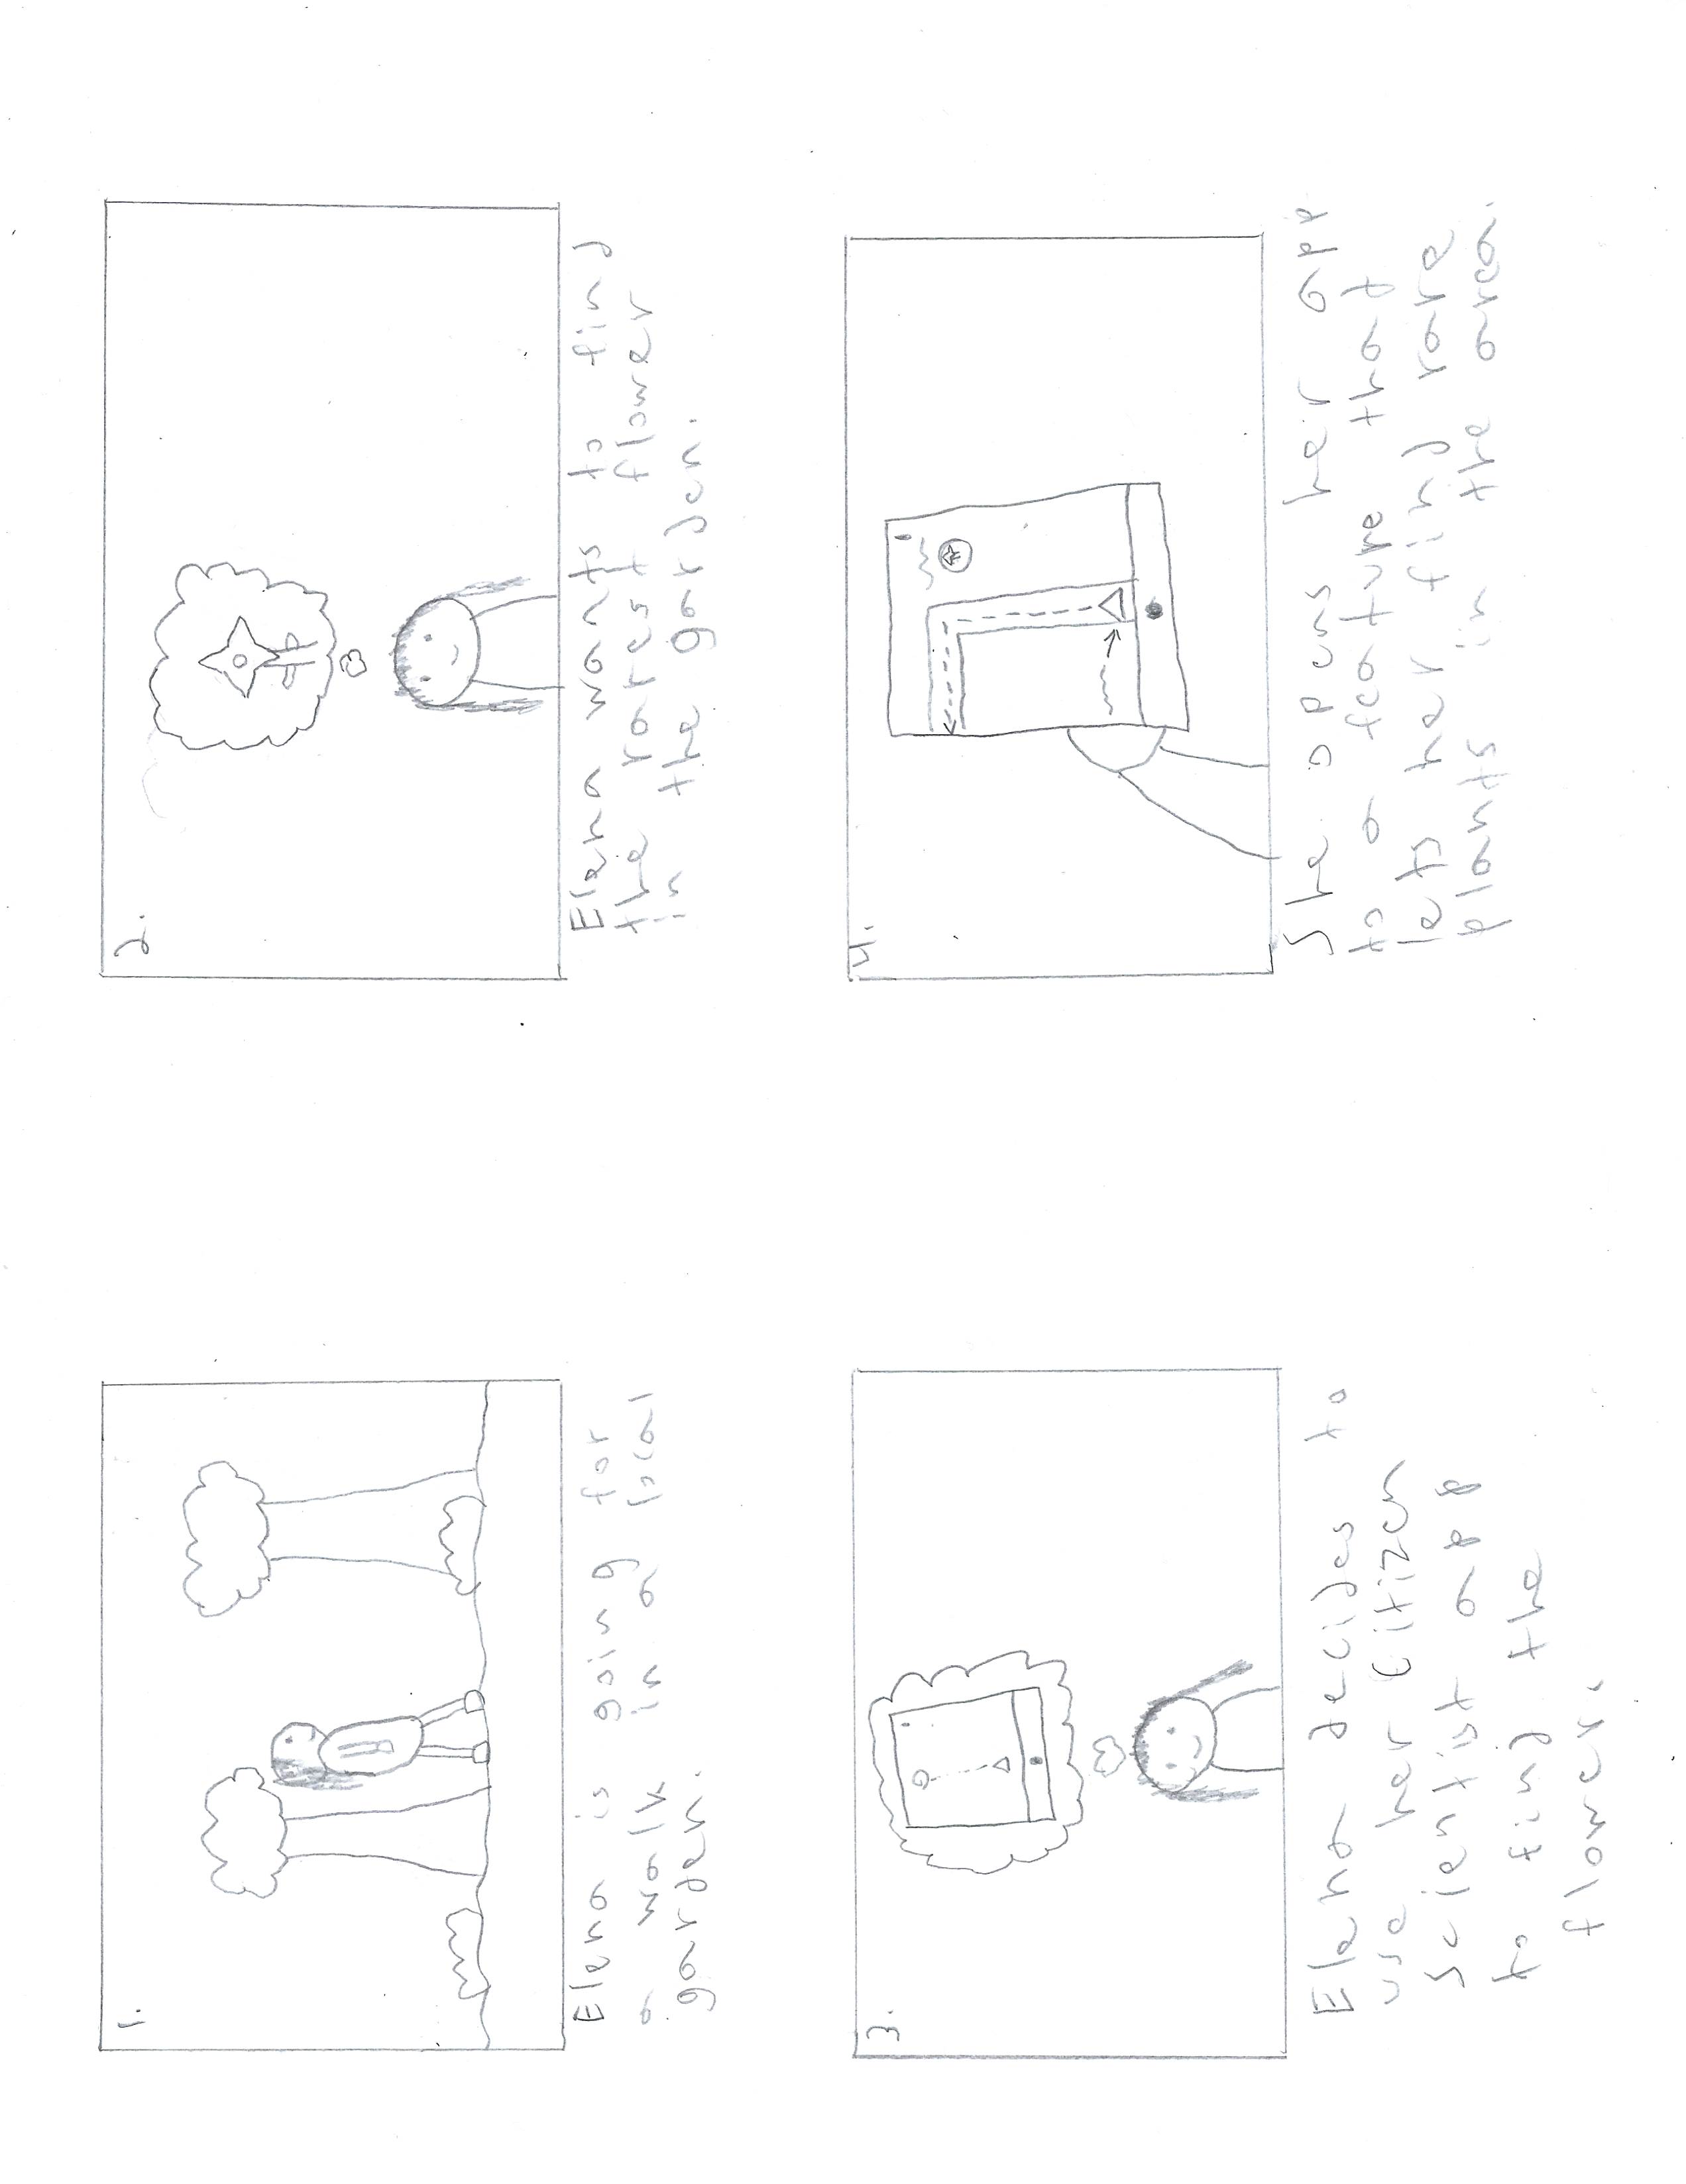 1.
Elena is going for
a walk in a local
garden.
2.
Elena wants to find
the rarest flower
in the garden.
3.
Elena decides to
use her Citizen
Scientist app
to find the
flower.
4.
She opens her app
to a feature that
lets her find rare
plants in the area.